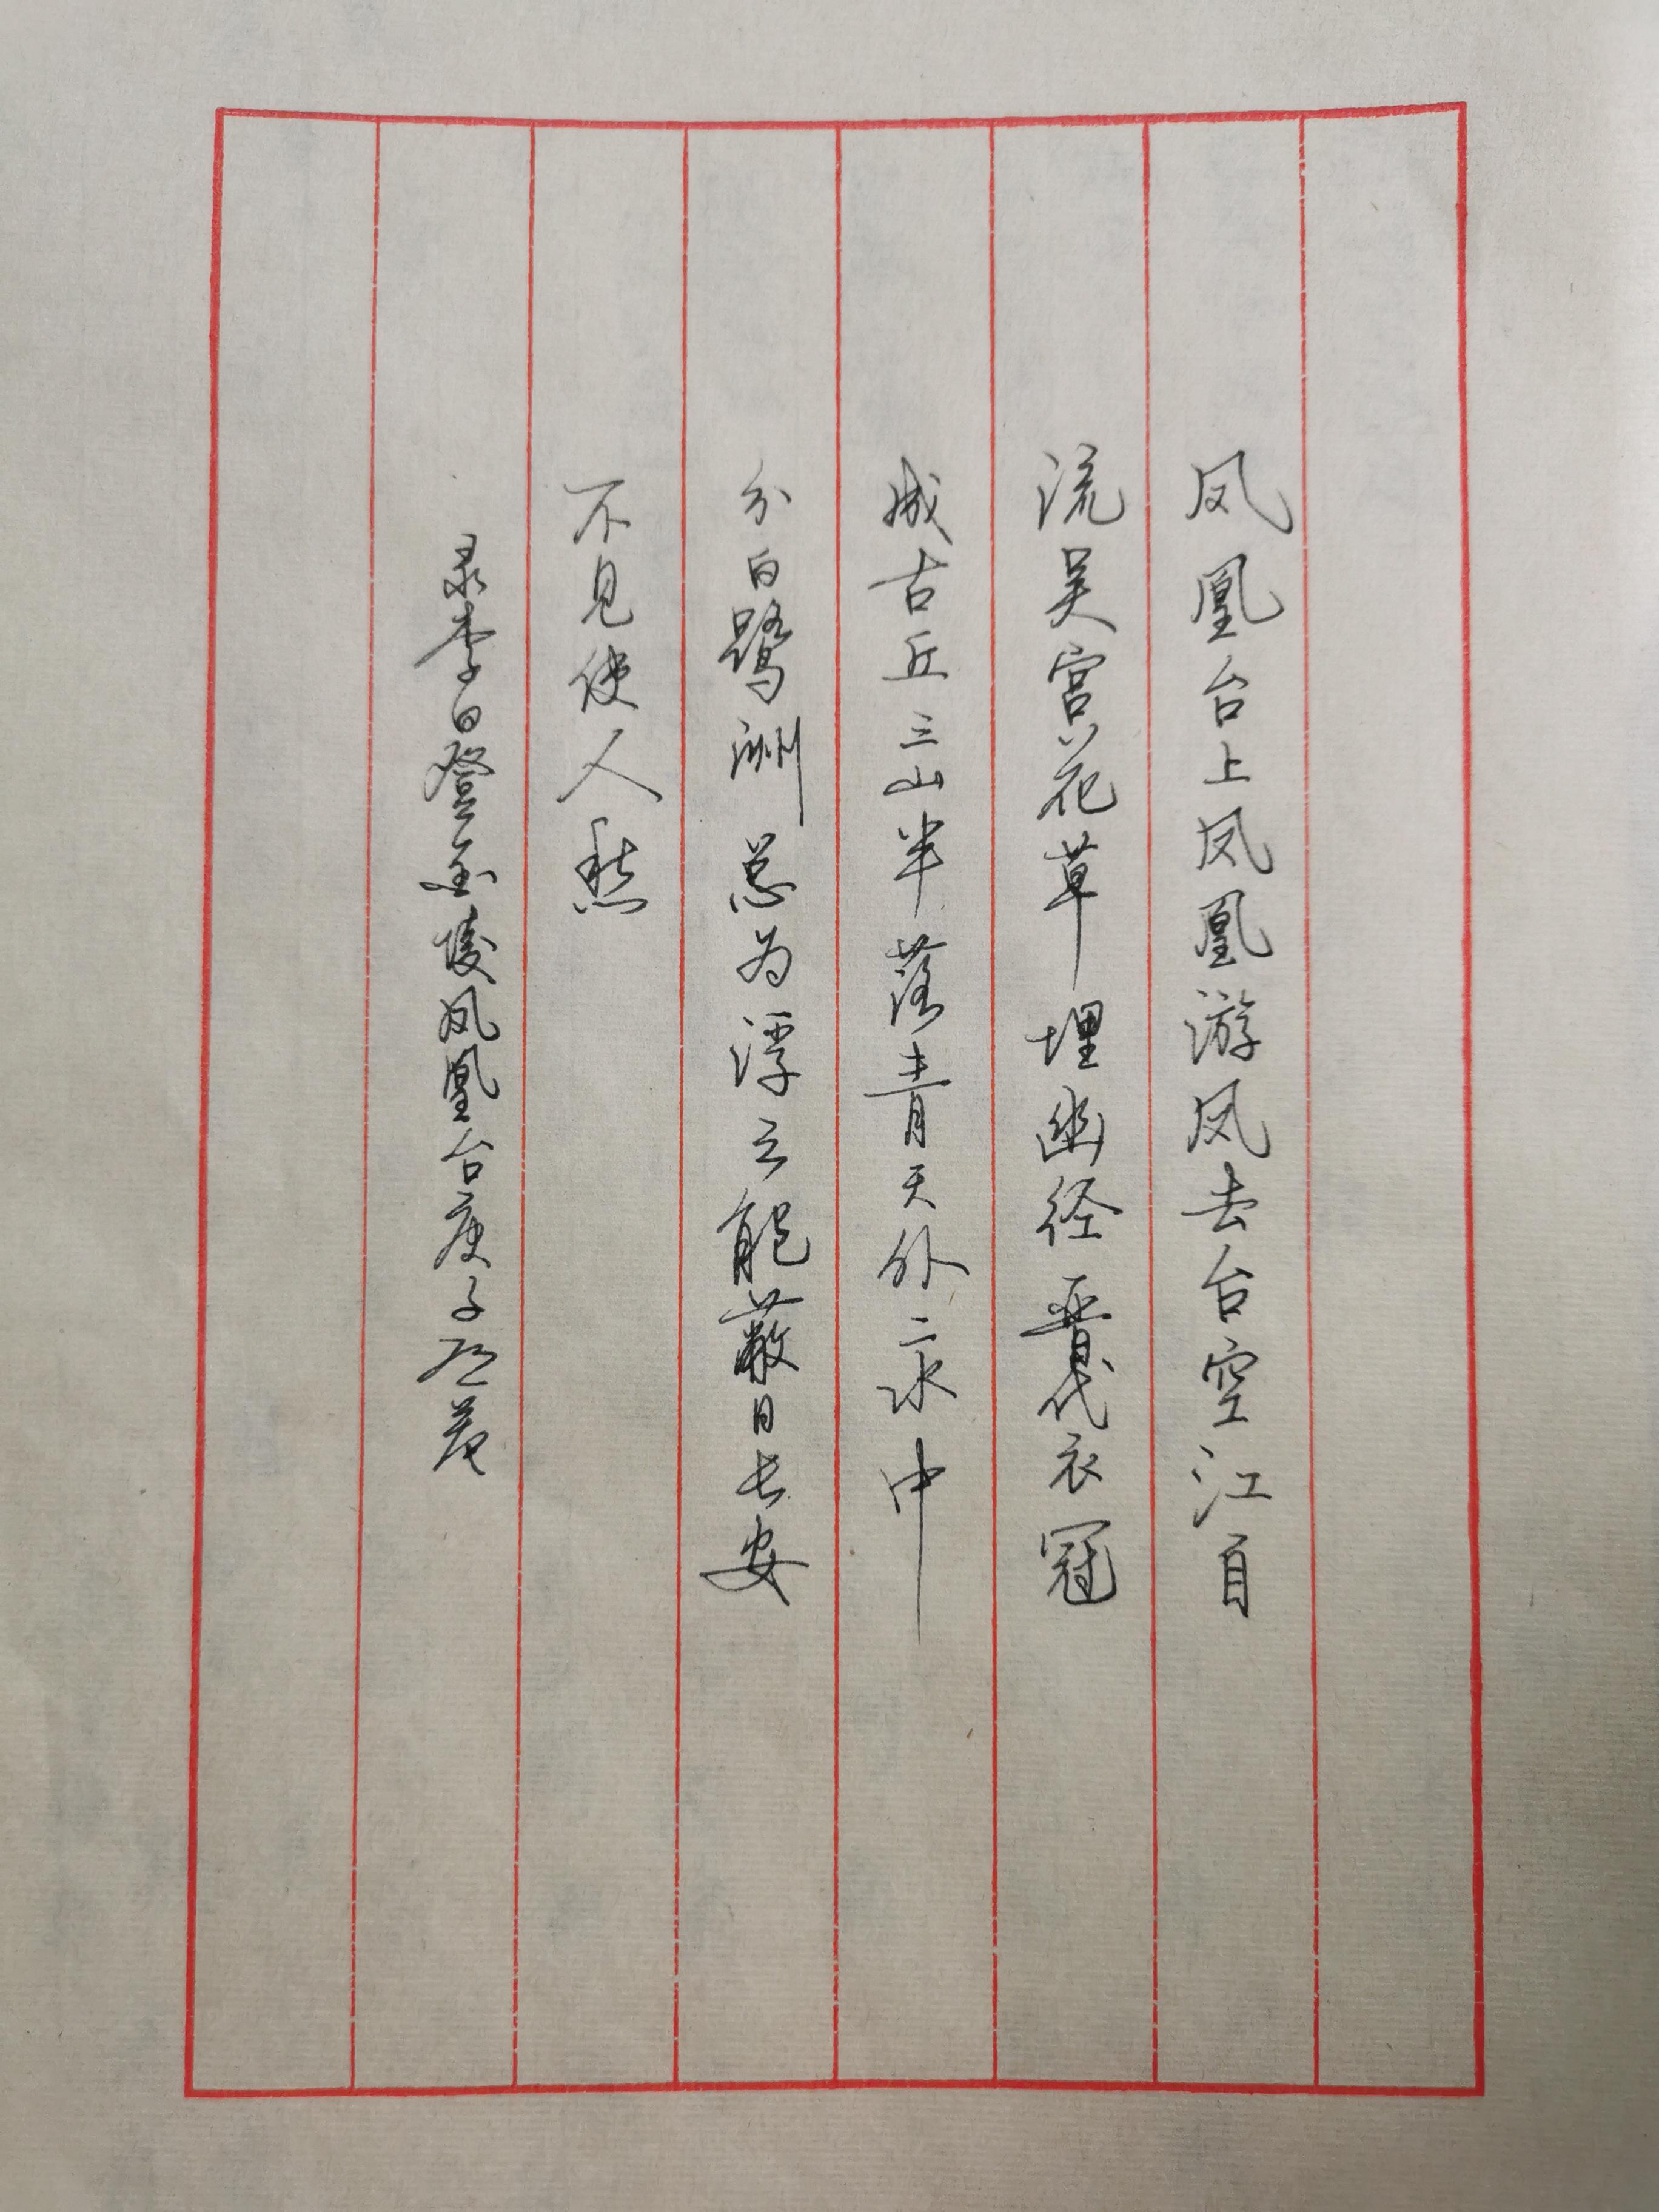 凤凰台上凤凰游凤去台空江自
流吴宫花草埋幽径晋代衣冠
成古丘三山半落青天外二水中
分白鹭洲总为浮云能蔽日长安
不见使人愁
录李白登金陵凤凰台庚子